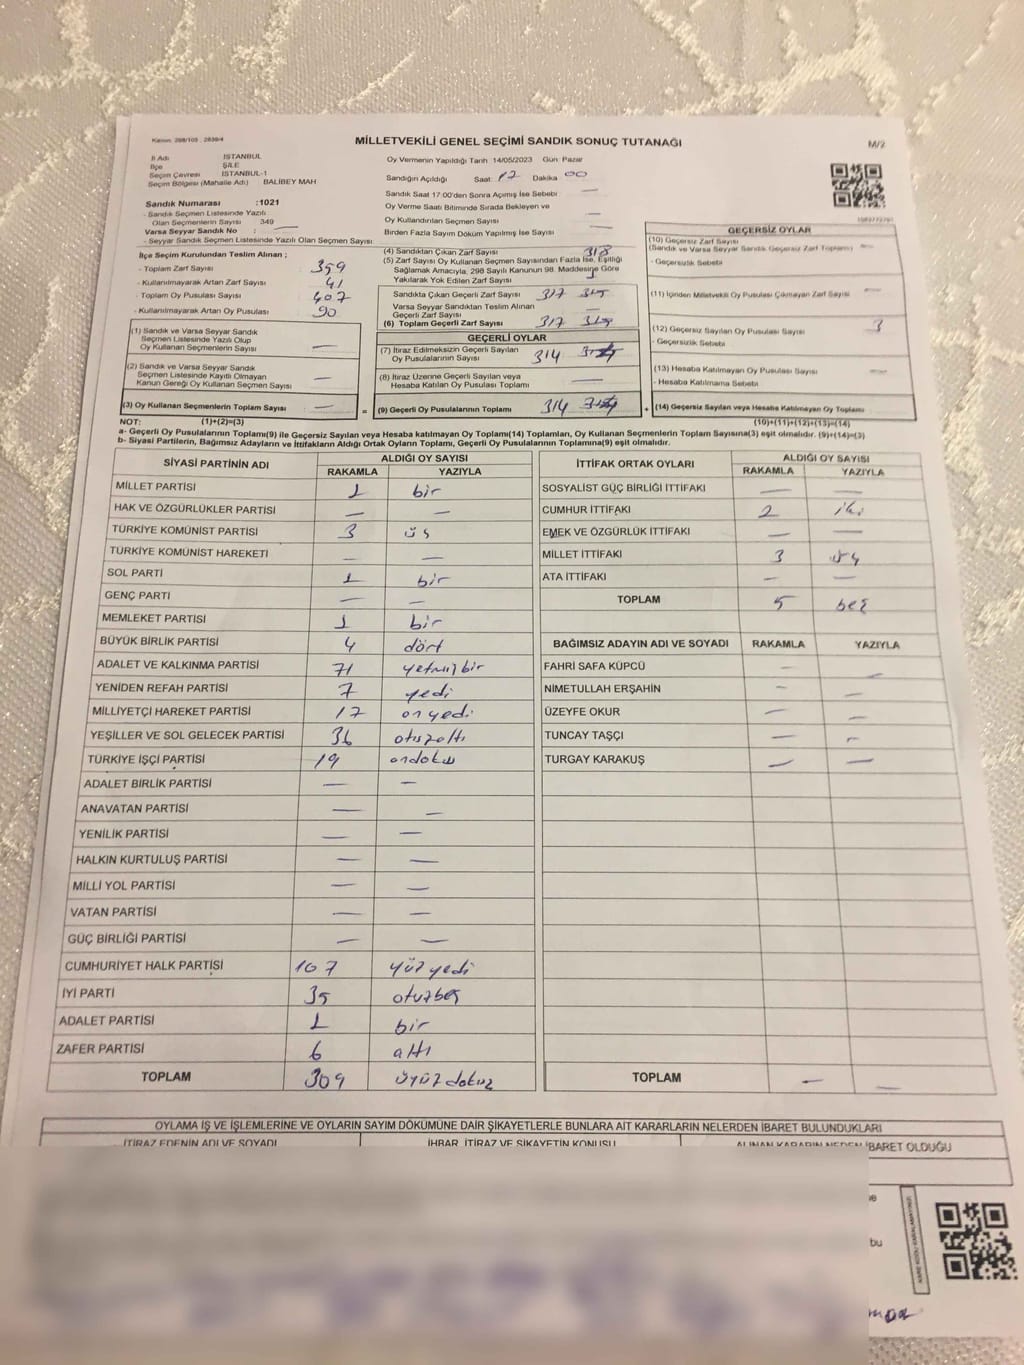 Kanun: 298/105 2839/4
MİLLETVEKİLİ GENEL SEÇİMİ SANDIK SONUÇ TUTANAĞI
M/2
İl Adı İSTANBUL
İlçe ŞİLE
Seçim Çevresi İSTANBUL-1
Seçim Bölgesi (Mahalle Adı) BALİBEY MAH
Sandık Numarası :1021
- Sandık Seçmen Listesinde Yazılı
Olan Seçmenlerin Sayısı 349
Varsa Seyyar Sandık No :
- Seyyar Sandık Seçmen Listesinde Yazılı Olan Seçmen Sayısı:
Oy Vermenin Yapıldığı Tarih 14/05/2023 Gün: Pazar
Sandığın Açıldığı Saat: 17 Dakika 00
Sandık Saat 17:00'den Sonra Açılmış İse Sebebi —
Oy Verme Saati Bitiminde Sırada Bekleyen ve
Oy Kullandırılan Seçmen Sayısı —
Birden Fazla Sayım Döküm Yapılmış İse Sayısı —
İlçe Seçim Kurulundan Teslim Alınan ;
- Toplam Zarf Sayısı 359
- Kullanılmayarak Artan Zarf Sayısı 41
- Toplam Oy Pusulası Sayısı 407
- Kullanılmayarak Artan Oy Pusulası 90
(1) Sandık ve Varsa Seyyar Sandık
Seçmen Listesinde Yazılı Olup
Oy Kullanan Seçmenlerin Sayısı —
(2) Sandık ve Varsa Seyyar Sandık
Seçmen Listesinde Kayıtlı Olmayan
Kanun Gereği Oy Kullanan Seçmen Sayısı —
(3) Oy Kullanan Seçmenlerin Toplam Sayısı —
(1)+(2)=(3)
(4) Sandıktan Çıkan Zarf Sayısı 318
(5) Zarf Sayısı Oy Kullanan Seçmen Sayısından Fazla İse, Eşitliği
Sağlamak Amacıyla, 298 Sayılı Kanunun 98. Maddesine Göre
Yakılarak Yok Edilen Zarf Sayısı
Sandıkta Çıkan Geçerli Zarf Sayısı 317
Varsa Seyyar Sandıktan Teslim Alınan
Geçerli Zarf Sayısı —
(6) Toplam Geçerli Zarf Sayısı 317
GEÇERLİ OYLAR
(7) İtiraz Edilmeksizin Geçerli Sayılan
Oy Pusulalarının Sayısı 314
(8) İtiraz Üzerine Geçerli Sayılan veya
Hesaba Katılan Oy Pusulası Toplamı —
= (9) Geçerli Oy Pusulalarının Toplamı 314
GEÇERSİZ OYLAR
(10) Geçersiz Zarf Sayısı
(Sandık ve Varsa Seyyar Sandık Geçersiz Zarf Toplamı) —
- Geçersizlik Sebebi
(11) İçinden Milletvekili Oy Pusulası Çıkmayan Zarf Sayısı —
(12) Geçersiz Sayılan Oy Pusulası Sayısı 3
- Geçersizlik Sebebi
(13) Hesaba Katılmayan Oy Pusulası Sayısı —
- Hesaba Katılmama Sebebi
+ (14) Geçersiz Sayılan veya Hesaba Katılmayan Oy Toplamı
(10)+(11)+(12)+(13)=(14)
NOT:
a- Geçerli Oy Pusulalarının Toplamı(9) ile Geçersiz Sayılan veya Hesaba katılmayan Oy Toplamı(14) Toplamları, Oy Kullanan Seçmenlerin Toplam Sayısına(3) eşit olmalıdır. (9)+(14)=(3)
b- Siyasi Partilerin, Bağımsız Adayların ve İttifakların Aldığı Ortak Oyların Toplamı, Geçerli Oy Pusulalarının Toplamına(9) eşit olmalıdır.
SİYASİ PARTİNİN ADI ALDIĞI OY SAYISI
RAKAMLA YAZIYLA
MİLLET PARTİSİ 1 bir
HAK VE ÖZGÜRLÜKLER PARTİSİ — —
TÜRKİYE KOMÜNİST PARTİSİ 3 üç
TÜRKİYE KOMÜNİST HAREKETİ — —
SOL PARTİ 1 bir
GENÇ PARTİ — —
MEMLEKET PARTİSİ 1 bir
BÜYÜK BİRLİK PARTİSİ 4 dört
ADALET VE KALKINMA PARTİSİ 71 yetmişbir
YENİDEN REFAH PARTİSİ 7 yedi
MİLLİYETÇİ HAREKET PARTİSİ 17 onyedi
YEŞİLLER VE SOL GELECEK PARTİSİ 36 otuzaltı
TÜRKİYE İŞÇİ PARTİSİ 19 ondokuz
ADALET BİRLİK PARTİSİ — —
ANAVATAN PARTİSİ — —
YENİLİK PARTİSİ — —
HALKIN KURTULUŞ PARTİSİ — —
MİLLİ YOL PARTİSİ — —
VATAN PARTİSİ — —
GÜÇ BİRLİĞİ PARTİSİ — —
CUMHURİYET HALK PARTİSİ 107 yüzyedi
İYİ PARTİ 35 otuzbeş
ADALET PARTİSİ 1 bir
ZAFER PARTİSİ 6 altı
TOPLAM 309 üçyüzdokuz
İTTİFAK ORTAK OYLARI ALDIĞI OY SAYISI
RAKAMLA YAZIYLA
SOSYALİST GÜÇ BİRLİĞİ İTTİFAKI — —
CUMHUR İTTİFAKI 2 iki
EMEK VE ÖZGÜRLÜK İTTİFAKI — —
MİLLET İTTİFAKI 3 üç
ATA İTTİFAKI — —
TOPLAM 5 beş
BAĞIMSIZ ADAYIN ADI VE SOYADI RAKAMLA YAZIYLA
FAHRİ SAFA KÜPCÜ — —
NİMETULLAH ERŞAHİN — —
ÜZEYFE OKUR — —
TUNCAY TAŞÇI — —
TURGAY KARAKUŞ — —
TOPLAM — —
OYLAMA İŞ VE İŞLEMLERİNE VE OYLARIN SAYIM DÖKÜMÜNE DAİR ŞİKAYETLERLE BUNLARA AİT KARARLARIN NELERDEN İBARET BULUNDUKLARI
İTİRAZ EDENİN ADI VE SOYADI İHBAR, İTİRAZ VE ŞİKAYETİN KONUSU ALINAN KARARIN NEDEN İBARET OLDUĞU
bu
KARE KODU KARALAMAYINIZ!